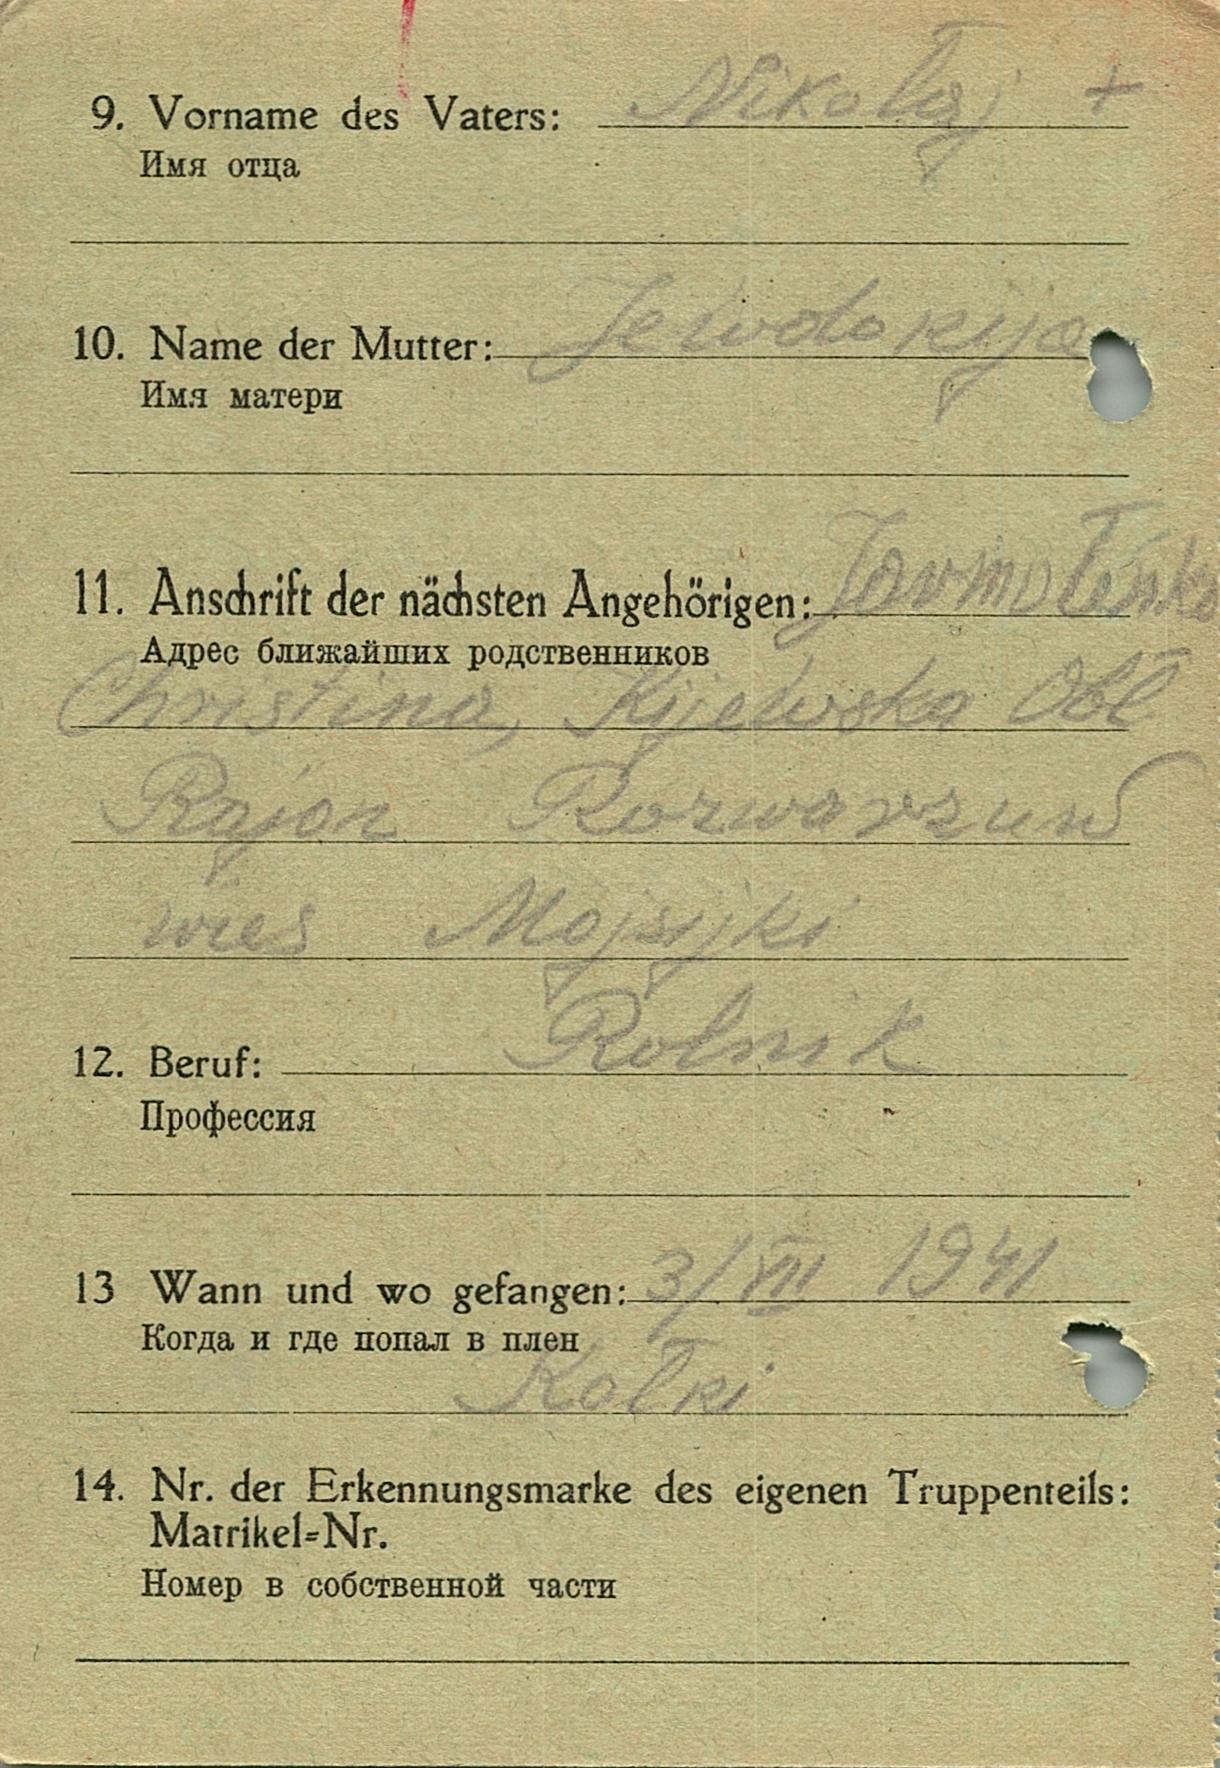 9. Vorname des Vaters: Nikołaj +
Имя отца
10. Name der Mutter: Jewdokija
Имя матери
11. Anschrift der nächsten Angehörigen: Jarmołenko
Адрес ближайших родственников
Christina, Kijewska Obł
Rajon
wieś Mojsijki
12. Beruf: Rolnik
Профессия
13 Wann und wo gefangen: 3/VII 1941
Когда и где попал в плен
Kołki
14. Nr. der Erkennungsmarke des eigenen Truppenteils:
Matrikel-Nr.
Номер в собственной части